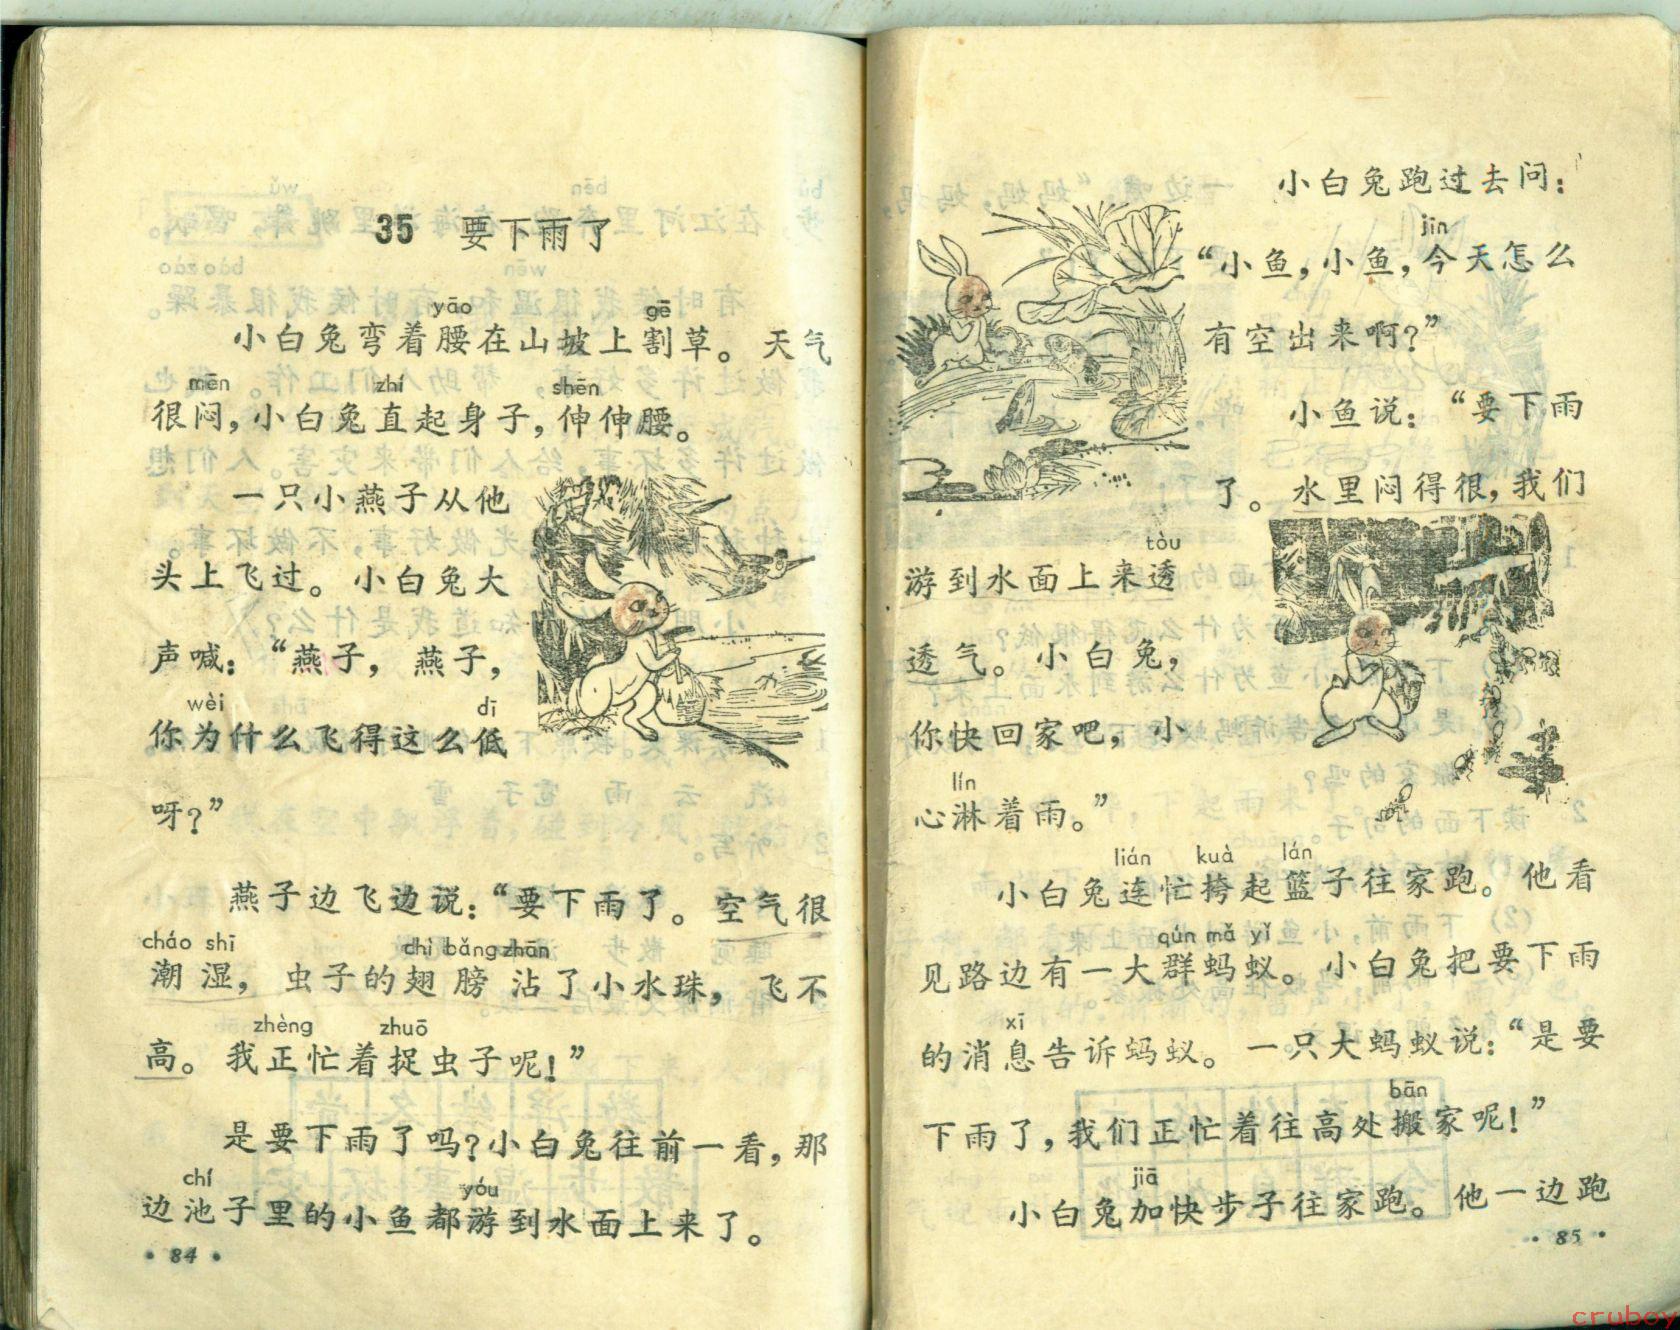 35 要下雨了
yāo gē
小白兔弯着腰在山坡上割草。天气
mēn zhí shēn
很闷，小白兔直起身子，伸伸腰。
一只小燕子从他
头上飞过。小白兔大
声喊：“燕子，燕子，
wèi dī
你为什么飞得这么低
呀？”
燕子边飞边说：“要下雨了。空气很
cháo shī chì bǎng zhān
潮湿，虫子的翅膀沾了小水珠，飞不
zhèng zhuō
高。我正忙着捉虫子呢！”
是要下雨了吗？小白兔往前一看，那
chí yóu
边池子里的小鱼都游到水面上来了。
• 84 •
小白兔跑过去问：
jīn
“小鱼，小鱼，今天怎么
有空出来啊？”
小鱼说：“要下雨
了。水里闷得很，我们
tòu
游到水面上来透
透气。小白兔，
你快回家吧，小
lín
心淋着雨。”
lián kuà lán
小白兔连忙挎起篮子往家跑。他看
qún mǎ yǐ
见路边有一大群蚂蚁。小白兔把要下雨
xī
的消息告诉蚂蚁。一只大蚂蚁说：“是要
bān
下雨了，我们正忙着往高处搬家呢！”
jiā
小白兔加快步子往家跑。他一边跑
• 85 •
cruboy